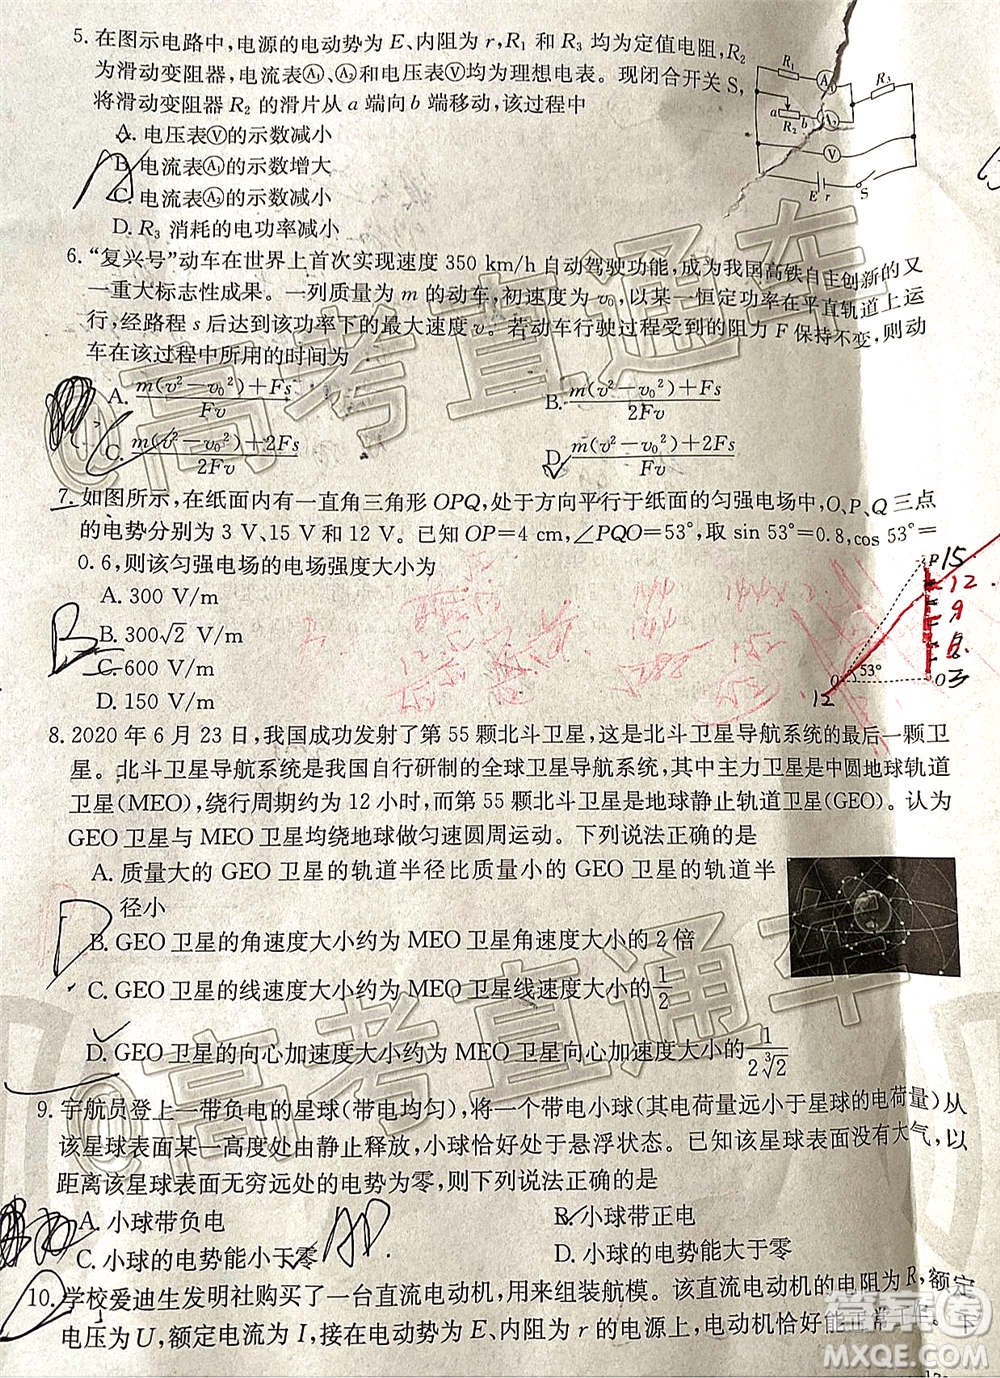 5. 在图示电路中,电源的电动势为 E、内阻为 r,R₁ 和 R₃ 均为定值电阻,R₂
为滑动变阻器,电流表Ⓐ₁、Ⓐ₂和电压表Ⓥ均为理想电表。现闭合开关 S,
将滑动变阻器 R₂ 的滑片从 a 端向 b 端移动,该过程中
A. 电压表Ⓥ的示数减小
B. 电流表Ⓐ₁的示数增大
C. 电流表Ⓐ₂的示数减小
D. R₃ 消耗的电功率减小
R₁ A₁ R₃
a R₂ b A₂
V
E r S
6. “复兴号”动车在世界上首次实现速度 350 km/h 自动驾驶功能,成为我国高铁自主创新的又
一重大标志性成果。一列质量为 m 的动车,初速度为 v₀,以某一恒定功率在平直轨道上运
行,经路程 s 后达到该功率下的最大速度 v。若动车行驶过程受到的阻力 F 保持不变,则动
车在该过程中所用的时间为
A. m(v²−v₀²)+Fs / Fv
B. m(v²−v₀²)+Fs / 2Fv
C. m(v²−v₀²)+2Fs / 2Fv
D. m(v²−v₀²)+2Fs / Fv
7. 如图所示,在纸面内有一直角三角形 OPQ,处于方向平行于纸面的匀强电场中,O、P、Q 三点
的电势分别为 3 V、15 V 和 12 V。已知 OP=4 cm,∠PQO=53°,取 sin 53°=0.8,cos 53°=
0.6,则该匀强电场的电场强度大小为
A. 300 V/m
B. 300√2 V/m
C. 600 V/m
D. 150 V/m
B
P 15
12
9
6
Q 53° O 3
12
8. 2020 年 6 月 23 日,我国成功发射了第 55 颗北斗卫星,这是北斗卫星导航系统的最后一颗卫
星。北斗卫星导航系统是我国自行研制的全球卫星导航系统,其中主力卫星是中圆地球轨道
卫星(MEO),绕行周期约为 12 小时,而第 55 颗北斗卫星是地球静止轨道卫星(GEO)。认为
GEO 卫星与 MEO 卫星均绕地球做匀速圆周运动。下列说法正确的是
A. 质量大的 GEO 卫星的轨道半径比质量小的 GEO 卫星的轨道半
径小
B. GEO 卫星的角速度大小约为 MEO 卫星角速度大小的 2 倍
C. GEO 卫星的线速度大小约为 MEO 卫星线速度大小的 1/2
D. GEO 卫星的向心加速度大小约为 MEO 卫星向心加速度大小的 1/(2∛2)
D
9. 宇航员登上一带负电的星球(带电均匀),将一个带电小球(其电荷量远小于星球的电荷量)从
该星球表面某一高度处由静止释放,小球恰好处于悬浮状态。已知该星球表面没有大气,以
距离该星球表面无穷远处的电势为零,则下列说法正确的是
A. 小球带负电
B. 小球带正电
C. 小球的电势能小于零
D. 小球的电势能大于零
AD
10. 学校爱迪生发明社购买了一台直流电动机,用来组装航模。该直流电动机的电阻为 R,额定
电压为 U,额定电流为 I,接在电动势为 E、内阻为 r 的电源上,电动机恰好能正常工作。下
@高考直通车
@高考直通车
答案圈
MXQE.COM